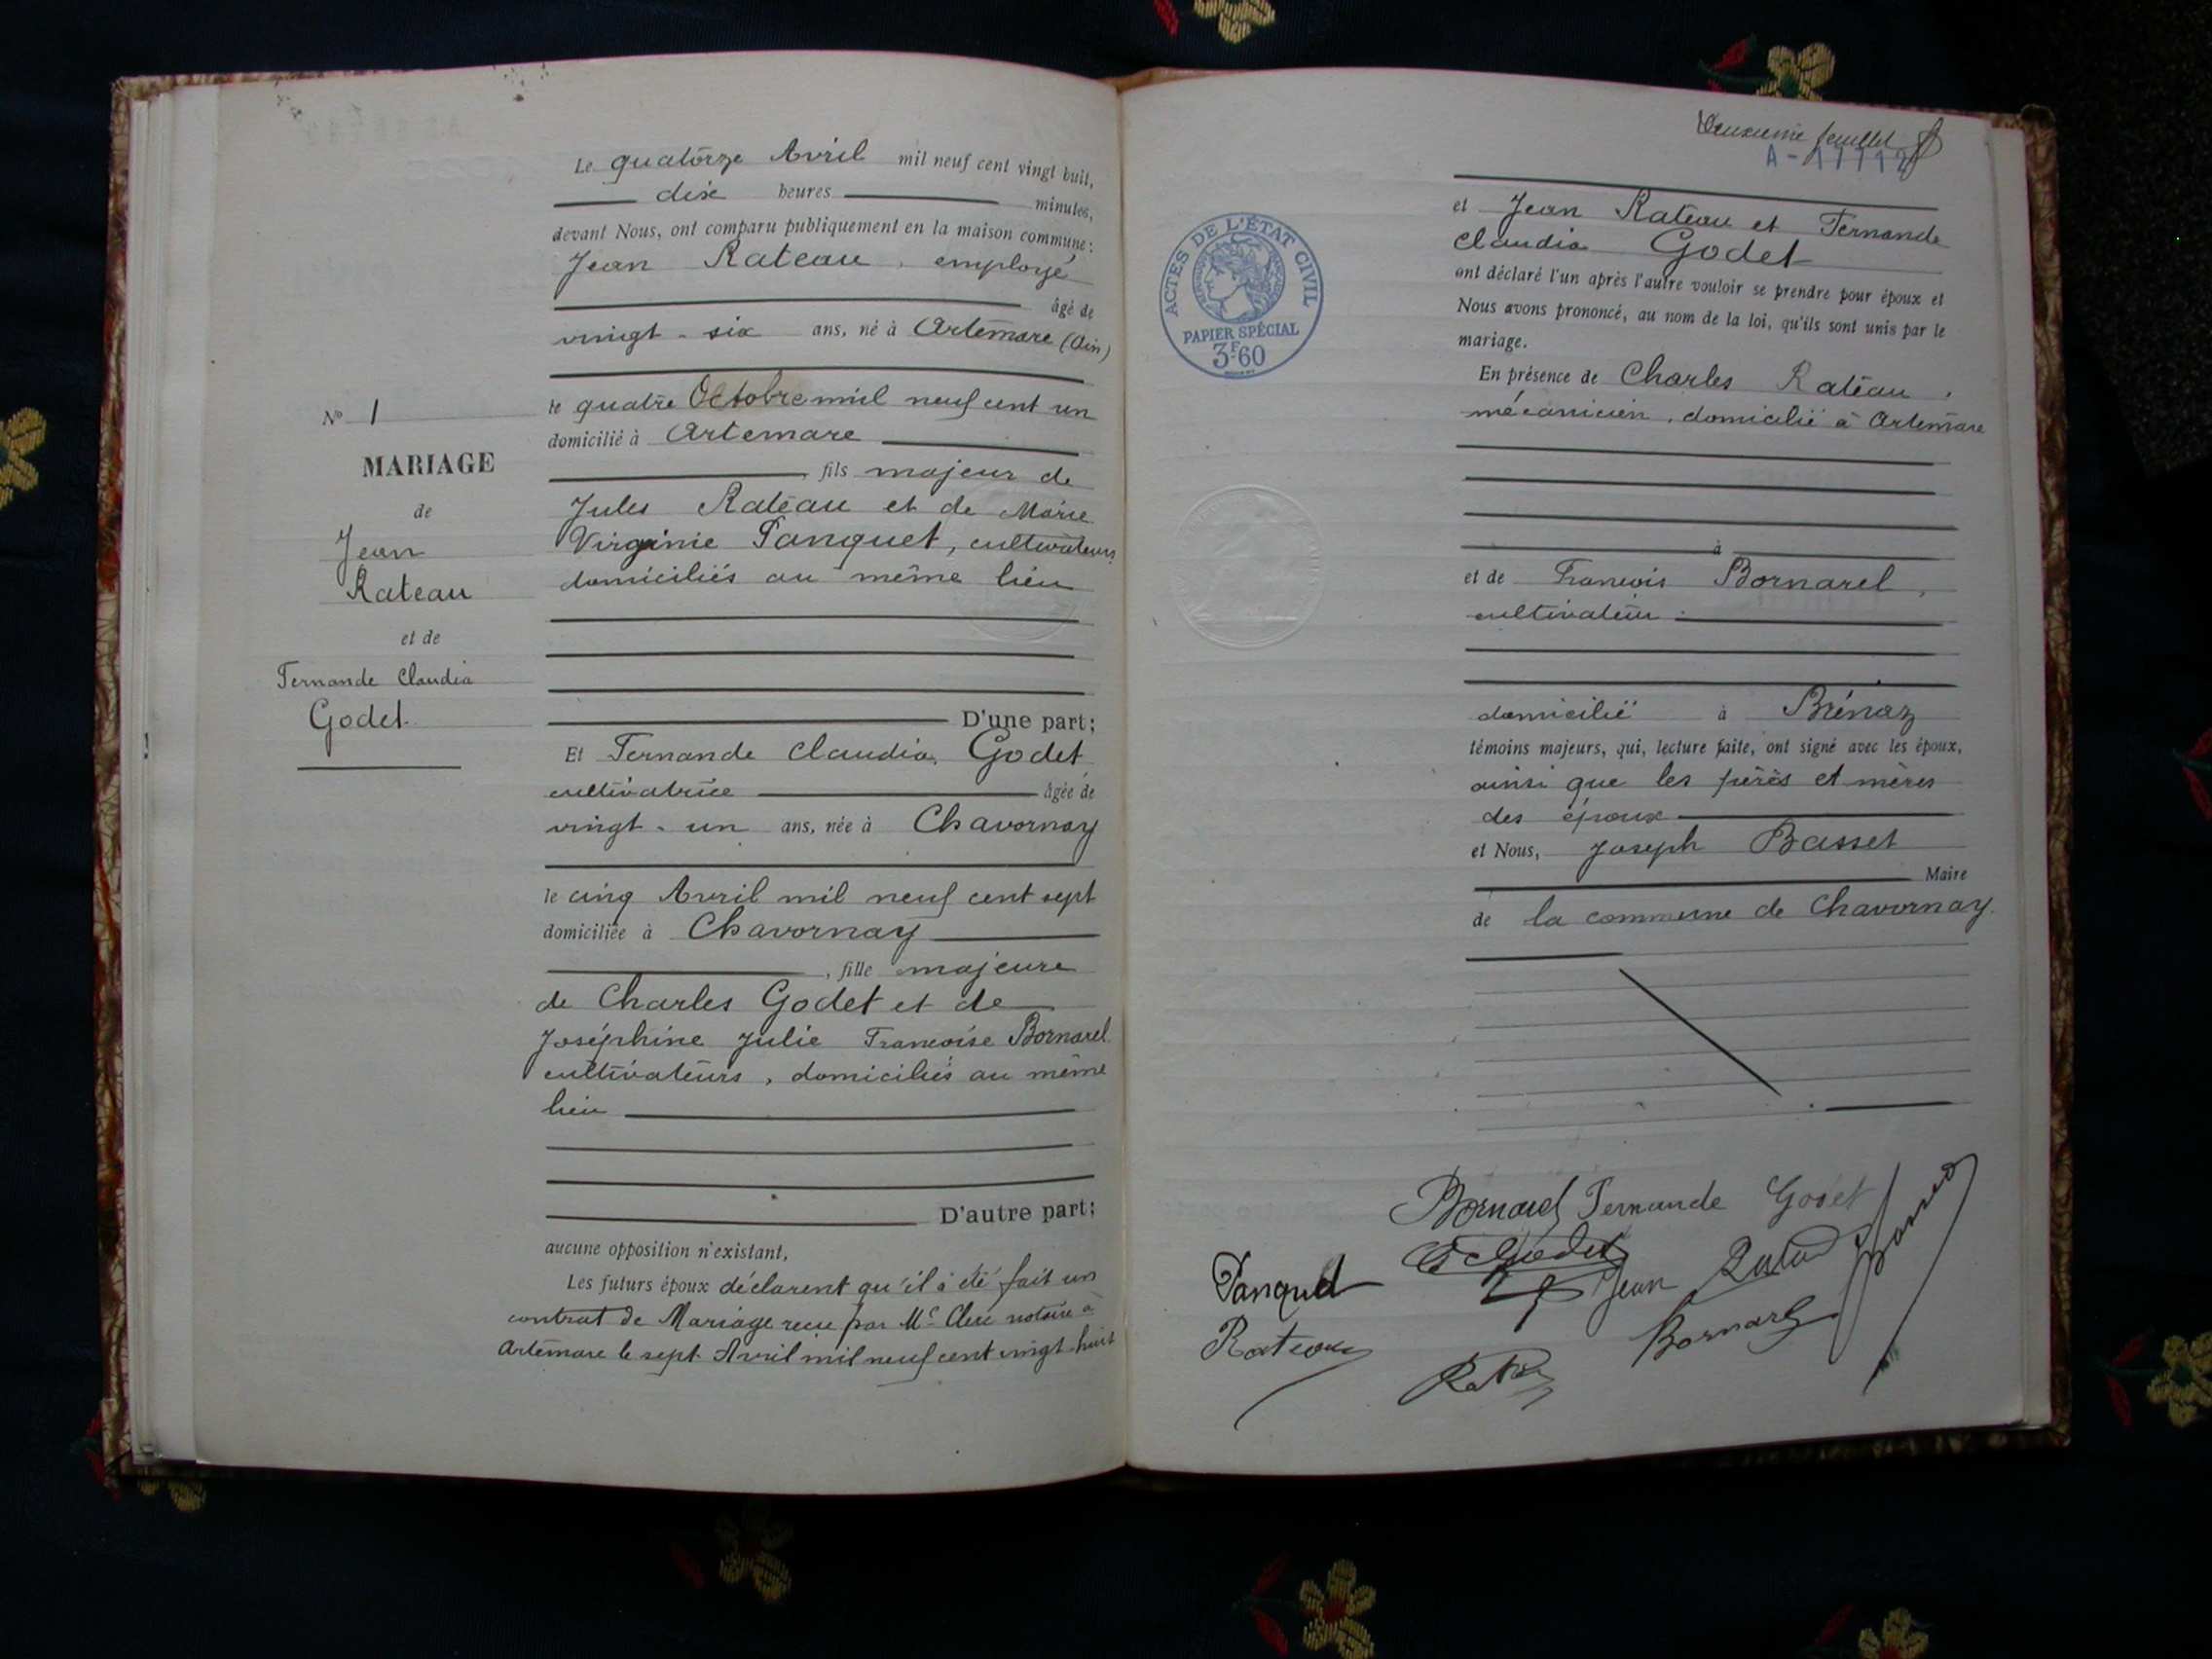 Le quatorze Avril mil neuf cent vingt huit,
dix heures minutes,
devant Nous, ont comparu publiquement en la maison commune:
Jean Rateau, employé
âgé de
vingt-six ans, né à Artemare (Ain)
le quatre Octobre mil neuf cent un
domicilié à Artemare
fils majeur de
Jules Rateau et de Marie
Virginie Panquet, cultivateurs,
domiciliés au même lieu
D'une part;
Et Fernande Claudia, Godet
cultivatrice âgée de
vingt-un ans, née à Chavornay
le cinq Avril mil neuf cent sept
domiciliée à Chavornay
, fille majeure
de Charles Godet et de
Joséphine Julie Francoise Bornarel
cultivateurs, domiciliés au même
lieu
D'autre part;
aucune opposition n'existant,
Les futurs époux déclarent qu'il a été fait un
contrat de Mariage recu par Me Clerc notaire à
Artemare le sept Avril mil neuf cent vingt-huit
No 1
MARIAGE
de
Jean
Rateau
et de
Fernande Claudia
Godet
Deuxième feuillet
ACTES DE L'ÉTAT CIVIL
PAPIER SPÉCIAL
3F60
et Jean Rateau et Fernande
Claudia Godet
ont déclaré l'un après l'autre vouloir se prendre pour époux et
Nous avons prononcé, au nom de la loi, qu'ils sont unis par le
mariage.
En présence de Charles Rateau,
mécanicien, domicilié à Artemare
à
et de Francois Bornarel,
cultivateur
domicilié à Brénaz
témoins majeurs, qui, lecture faite, ont signé avec les époux,
ainsi que les pères et mères
des époux
et Nous, Joseph Basset
Maire
de la commune de Chavornay.
Bornarel Fernande Godet
Panquet
Jean Rateau
Rateau
Bornarel
Basset